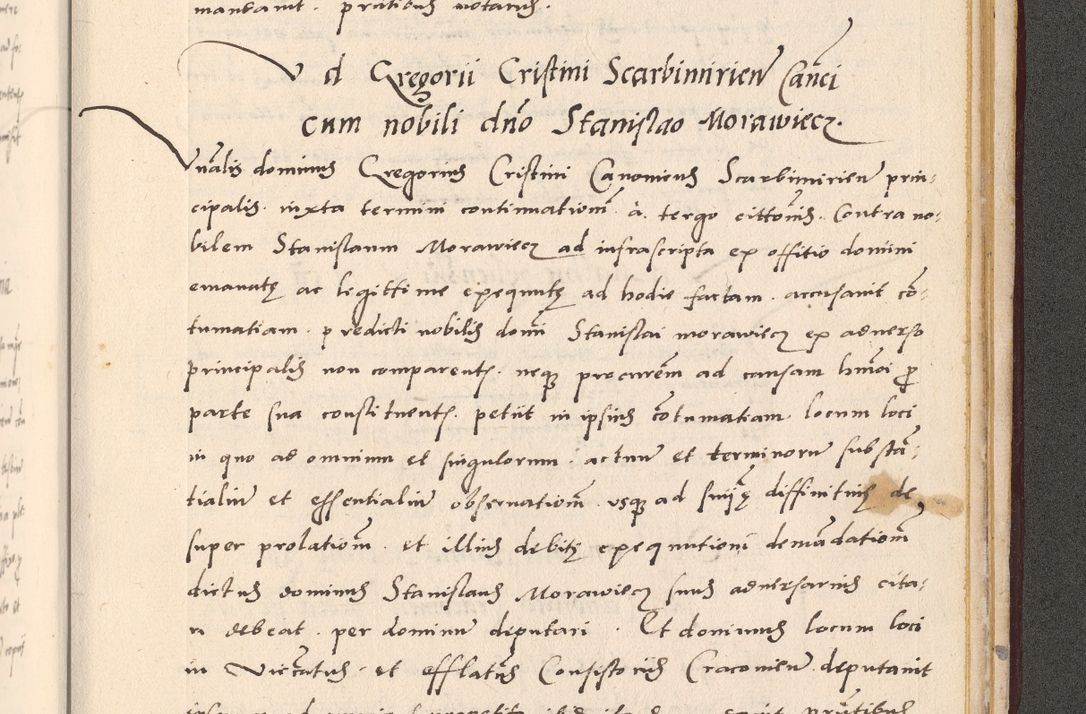 mandavit . pñtibus notariis .
Vd Gregorii Cristini Scarbimirien̄ Canci
cum nobili dn̄o Stanislao Morawiecz.
Vn̄alis dominus Gregorius Cristini Canonicus Scarbimirien̄ prin-
cipalis . iuxta termini continuationem̄ . a . tergo cittonis . Contra no-
bilem Stanislaum Morawiecz ad infrascripta ex offitio domini
emanatę ac legittime exequutę ad hodie factam . accusavit cō-
tumatiam . predicti nobilis domi Stanislai morawiecz ex adverso
principalis non comparentis . neqz procurem̄ ad causam hm̄oi pro
parte sua constituentis . petiit in ipsius cōtumatiam . locum loci
in quo ad omnium et singulorum . actuū et terminorū substā-
tialiū et essentialiū observationem̄ . usqz ad sniię diffinitivę de-
super prolationem̄ . et illius debitę exequutionem̄ demādationem̄
dictus dominus Stanislaus Morawiecz suus adversarius cita-
ri debeat . per dominū deputari . Et dominus locum loci
in Vicēatus . et efflatis̄ Consistoriis Cracovien̄ . deputavit